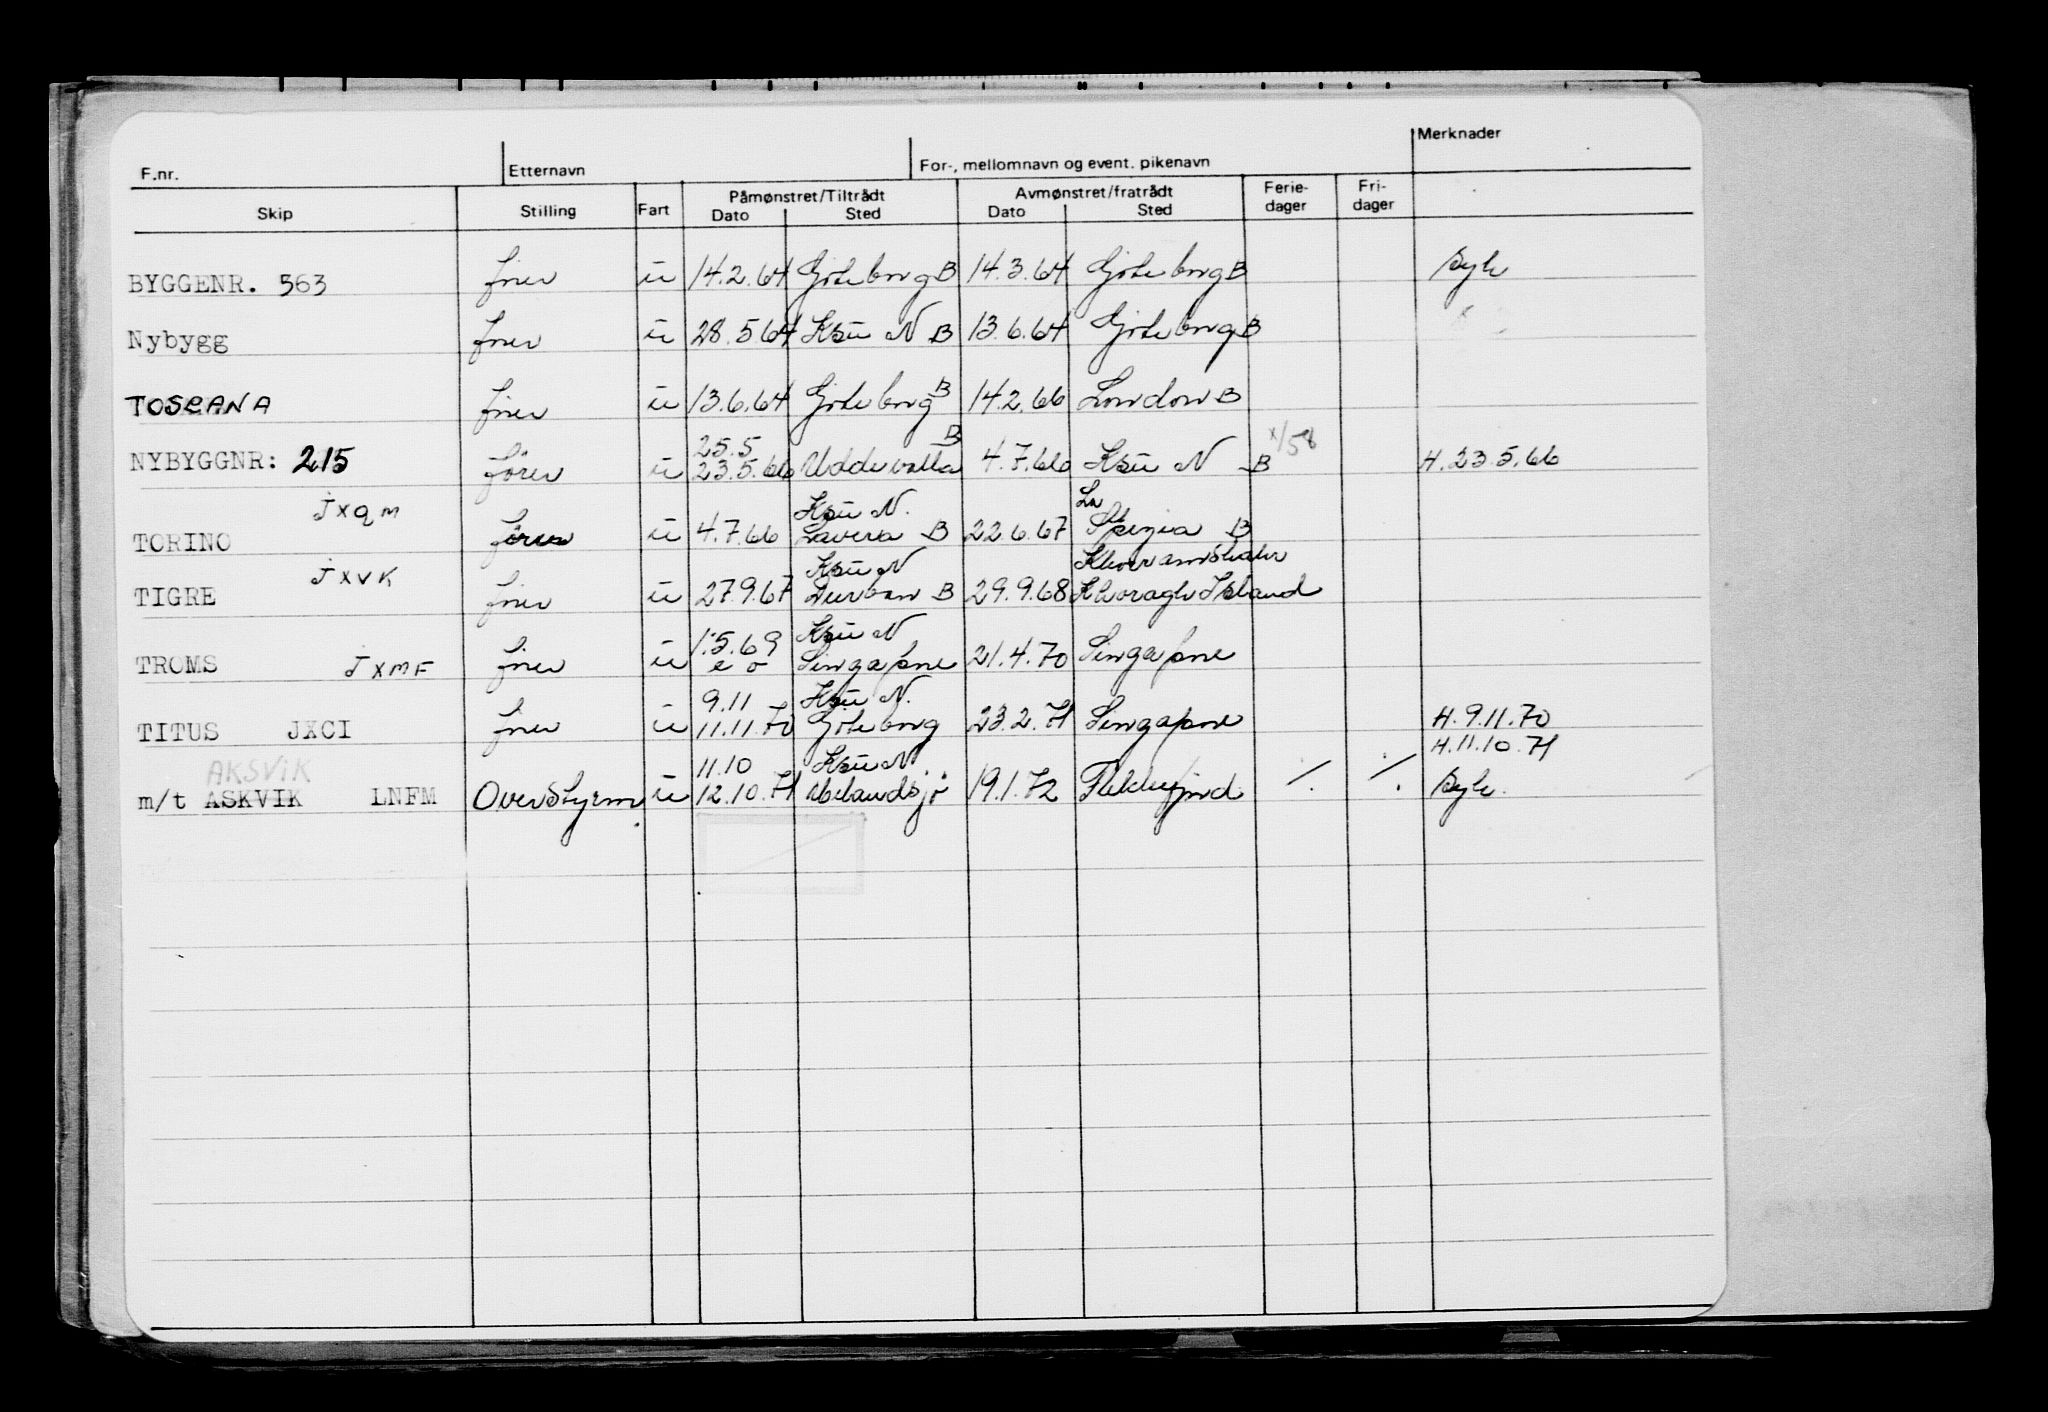 F.nr. Etternavn For-, mellomnavn og event. pikenavn Merknader
Skip Stilling Fart Påmønstret/Tiltrådt Dato Sted Avmønstret/fratrådt Dato Sted Ferie-dager Fri-dager
BYGGENR. 563 fører u 14.2.64 Göteborg B 14.3.64 Göteborg B Syk
Nybygg fører u 28.5 64 Ksu N B 13.6.64 Göteborg B
TOSCANA fører u 13.6.64 Göteborg B 14.2.66 London B
25.5 B x/58
NYBYGGNR: 215 fører u 23.5.66 Uddevalla 4.7.66 Ksu N B H.23.5.66
JXQM Ksu N. La
TORINO fører u 4.7.66 Lavera B 22.6.67 Spezia B
JXVK Ksu N Khorramshahr
TIGRE fører u 27.9.67 Durban B 29.9.68 Khoragh Island
1.5.69 Ksu N
TROMS JXMF fører u e o Singapore 21.4.70 Singapore
9.11 Ksu N.
TITUS JXCI fører u 11.11.70 Göteborg 23.2.71 Singapore H.9.11.70
AKSVIK 11.10 Ksu N H.11.10.71
m/t ASKVIK LNFM Overstyrm. u 12.10.71 Uelandsjö 19.1.72 Flekkefjord / . / . Syk.